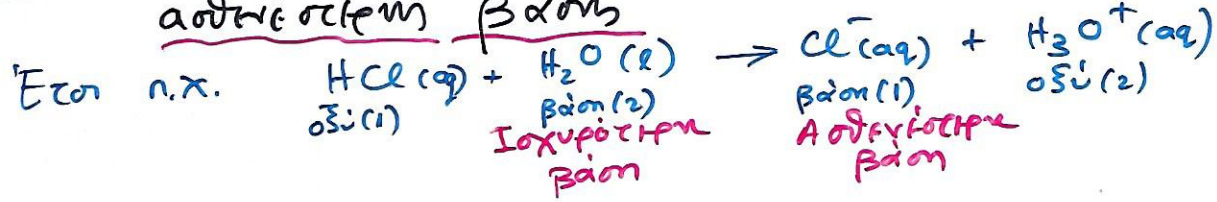 ασθενέστερη βάση
Έτσι π.χ. HCl (aq) + H₂O (l) → Cl⁻ (aq) + H₃O⁺ (aq)
οξύ (1) βάση (2) βάση (1) οξύ (2)
Ισχυρότερη Ασθενέστερη
βάση βάση